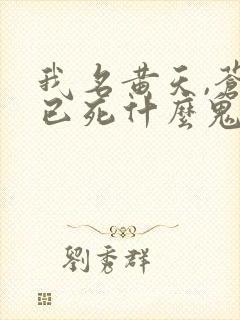 我名黄天,蒼
已死什麼鬼
劉秀群